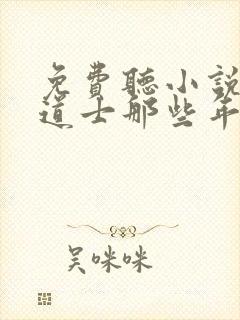 免費聽小說
道士那些年
吴咪咪